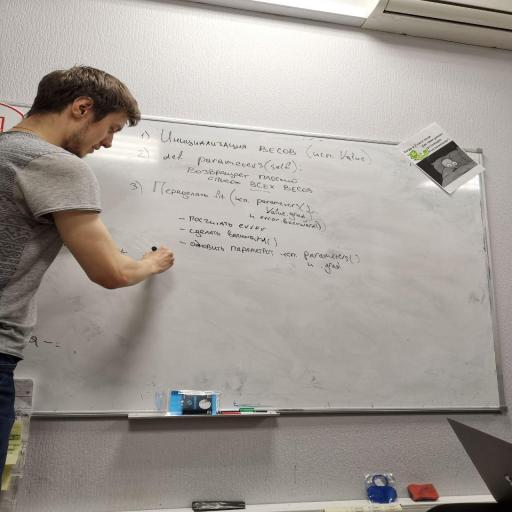 1) Инициализация весов (исп. Value)
2) def parameters(self):
возвращает плоский
список всех весов
3) Переделать fit (исп. parameters(),
Value.grad,
и error.backward())
- посчитать error
- сделать backward()
- обновить параметры исп. parameters()
и .grad